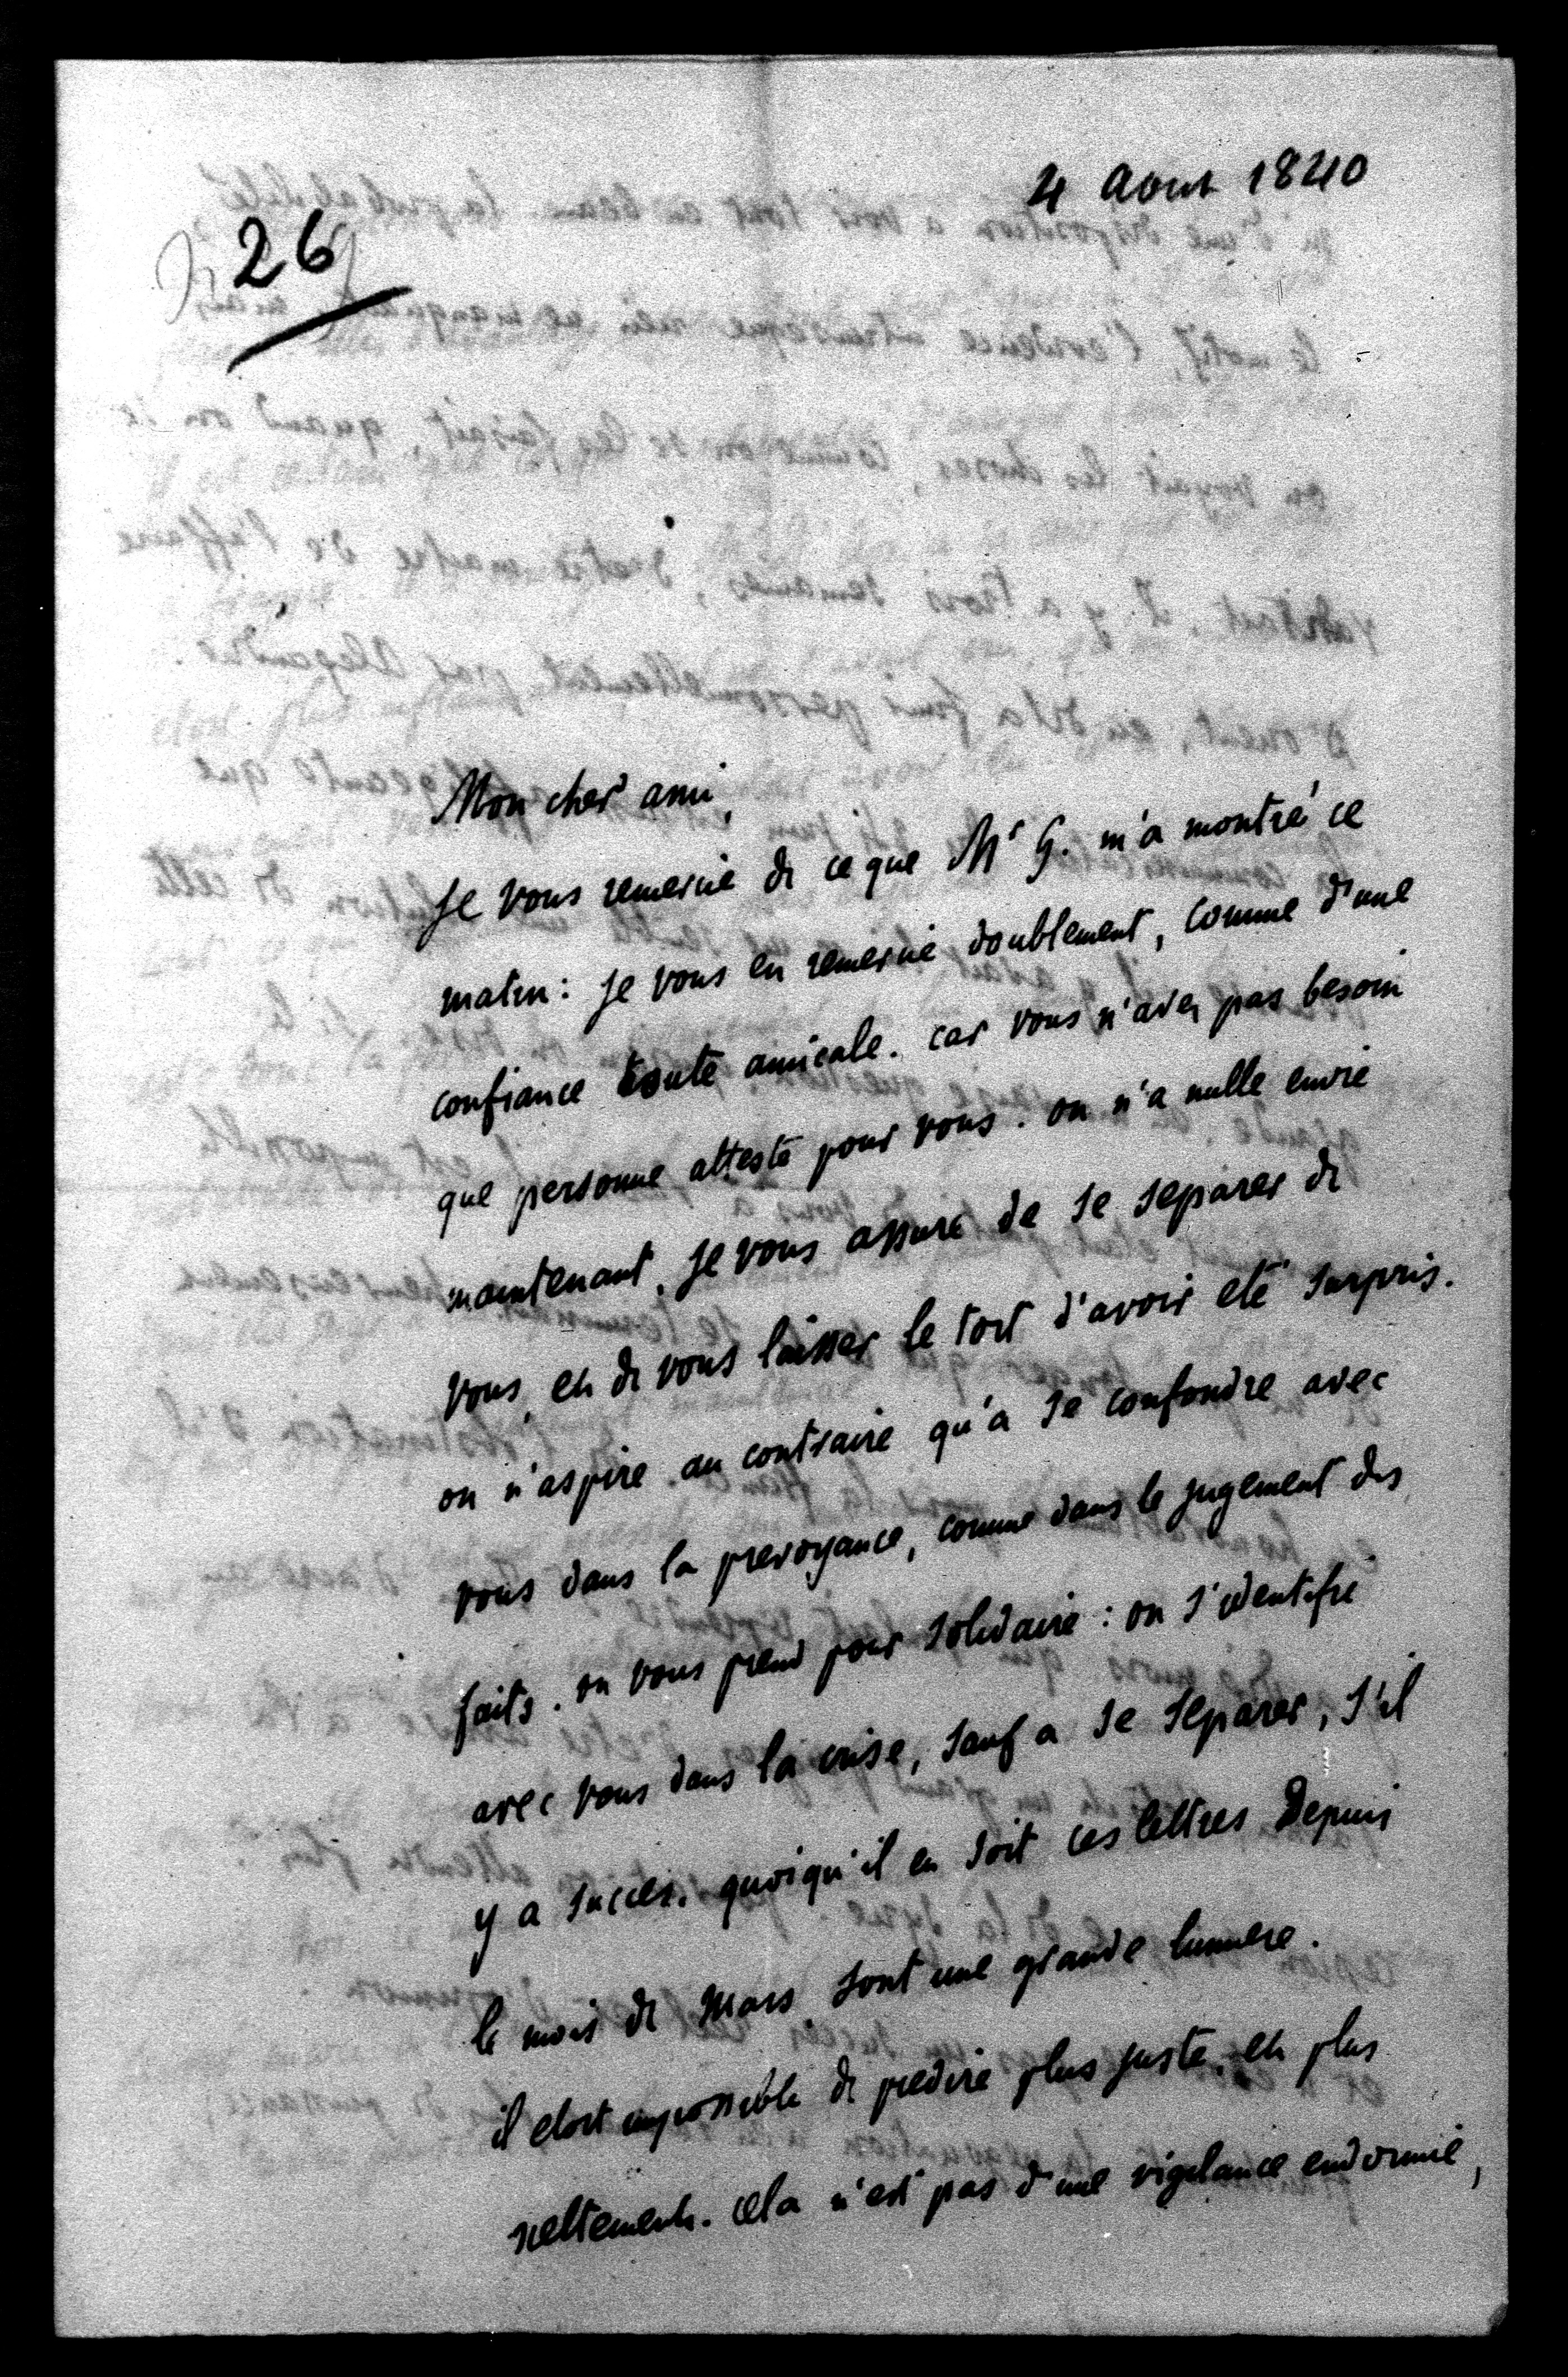 4 aout 1840
26
Mon cher ami,
Je vous remercie de ce que Mr G. m'a montré ce
matin : je vous en remercie doublement, comme d'une
confiance toute amicale. car vous n'avez pas besoin
que personne atteste pour vous. on n'a nulle envie
maintenant, je vous assure de se separer de
vous, et de vous laisser le tort d'avoir eté surpris.
on n'aspire au contraire qu'a se confondre avec
vous dans la prevoyance, comme dans le jugement des
faits. on vous prend pour solidaire : on s'identifie
avec vous dans la crise, sauf a se separer, s'il
y a succès. quoiqu'il en soit ces lettres Depuis
le mois de Mars sont une grande lumiere.
il etoit impossible de predire plus juste, et plus
nettement. cela n'est pas d'une vigilance endormie,